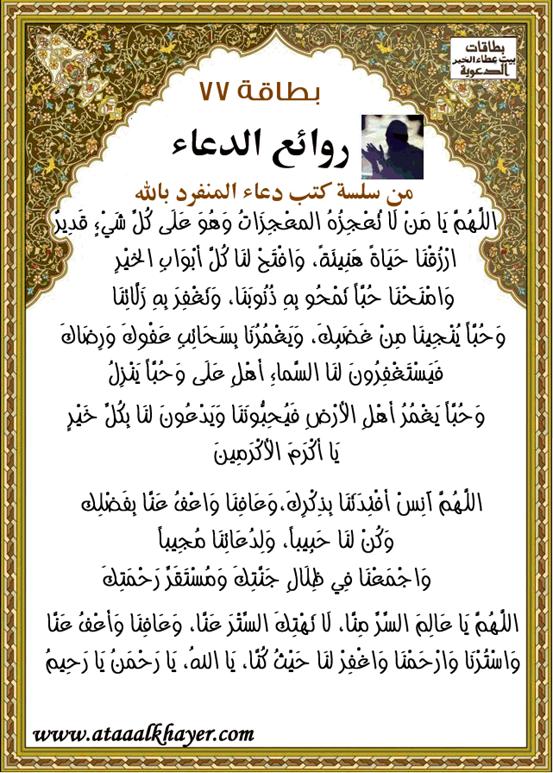 بطاقات
بيت عطاء الخير
الدعوية
بطاقة ٧٧
روائع الدعاء
من سلسة كتب دعاء المنفرد بالله
اللَّهُمَّ يَا مَنْ لَا تُعْجِزُهُ المعْجِزَاتُ وَهُوَ عَلَى كُلِّ شَيْءٍ قَدِيرٌ
ارْزُقْنَا حَيَاةً هَنِيئَةً، وَافْتَحْ لنَا كُلَّ أبْوَابِ الخيْرِ
وَامْنَحْنَا حُبّاً تَمْحُو بِهِ ذُنُوبَنَا، وَتَغْفِرَ بِهِ زَلَّاتِنَا
وَحُبّاً يُنْجِينَا مِنْ غَضَبِكَ، وَيَغْمُرُنَا بِسَحَائِبِ عَفْوِكَ وَرِضَاكَ
فَيَسْتَغْفِرُونَ لنَا السَّمَاءِ أهْلِ عَلَى وَحُبّاً يَنْزِلُ
وَحُبّاً يَغْمُرُ أهْلِ الأرْضِ فَيُحِبُّونَنَا وَيَدْعُونَ لنَا بِكُلِّ خَيْرٍ
يَا أكْرَمَ الأكْرَمِينَ
اللَّهُمَّ آنِسْ أفْئِدَتَنَا بِذِكْرِكَ،وَعَافِنَا وَاعْفُ عَنَّا بِفَضْلِكَ
وَكُنْ لنَا حَبِيباً، وَلِدُعَائِنَا مُجِيباً
وَاجْمَعْنَا فِي ظِلَالِ جَنَّتِكَ وَمُسْتَقَرِّ رَحْمَتِكَ
اللَّهُمَّ يَا عَالِمَ السِّرِّ مِنَّا، لَا تَهْتِكَ السِّتْرَ عَنَّا، وَعَافِنَا وَأعْفُ عَنَّا
وَاسْتُرْنَا وَارْحَمْنَا وَاغْفِرْ لنَا حَيْثُ كُنَّا، يَا اللهُ، يَا رَحْمَنُ يَا رَحِيمُ
www.ataaalkhayer.com